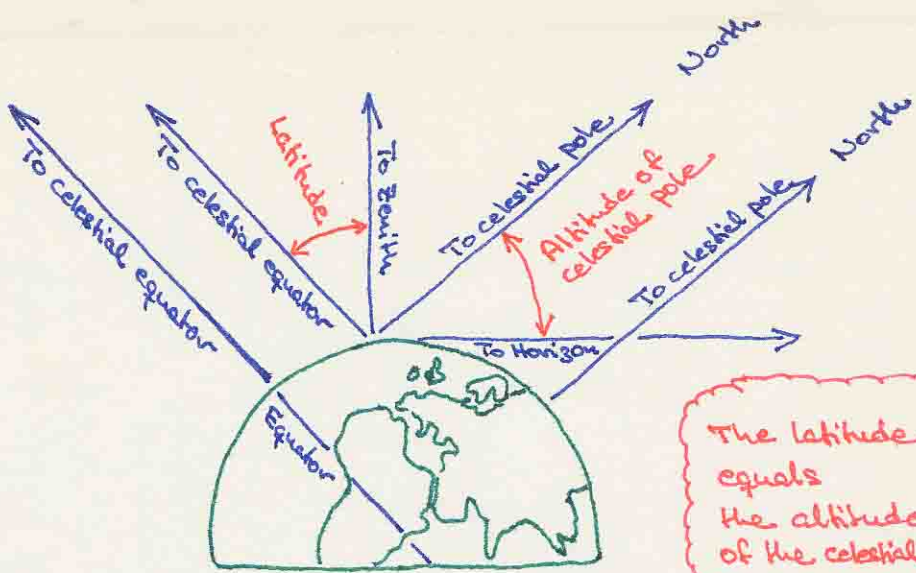 North
North
To celestial equator
To celestial equator
Latitude
To Zenith
To celestial pole
Altitude of
celestial pole
To celestial pole
To Horizon
Equator
The latitude
equals
the altitude
of the celestial